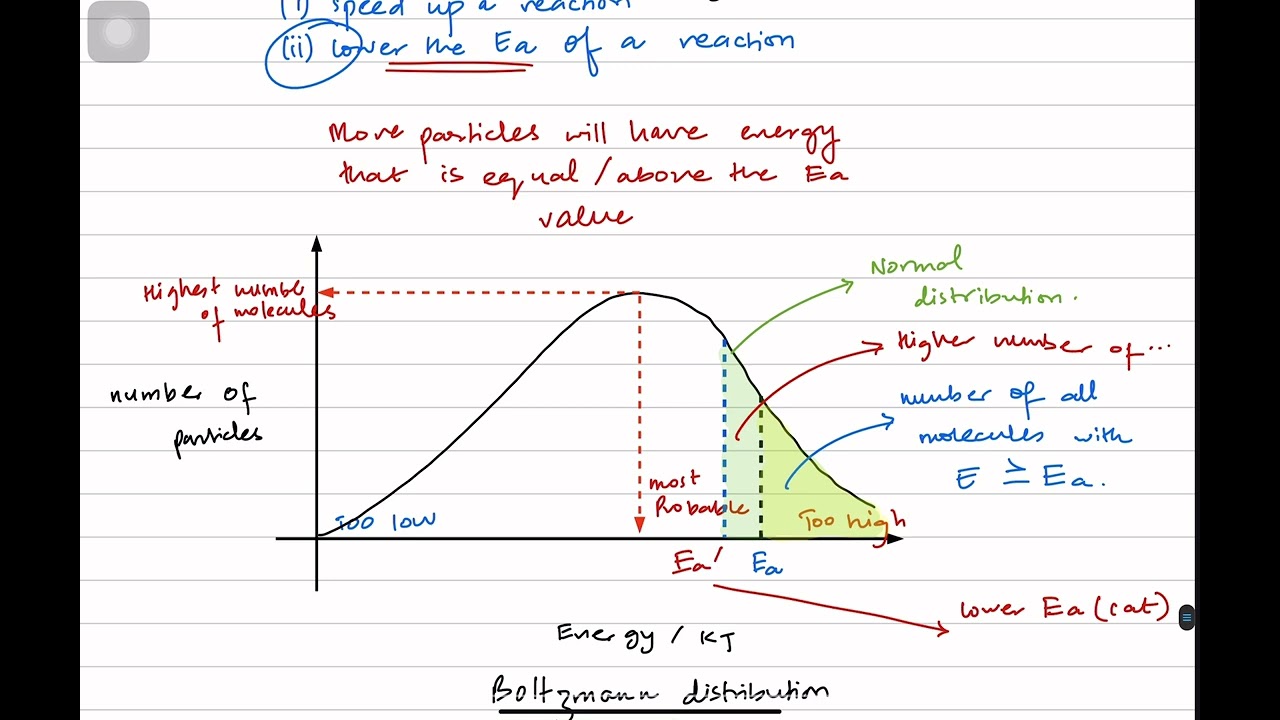 (i) speed up a reaction
(ii) lower the Ea of a reaction
More particles will have energy
that is equal / above the Ea
value
Highest number
of molecules
number of
particles
Normal
distribution.
Higher number of ...
number of all
molecules with
E ≥ Ea.
most
Probable
Too low
Too high
Ea'
Ea
lower Ea (cat)
Energy / KJ
Boltzmann distribution